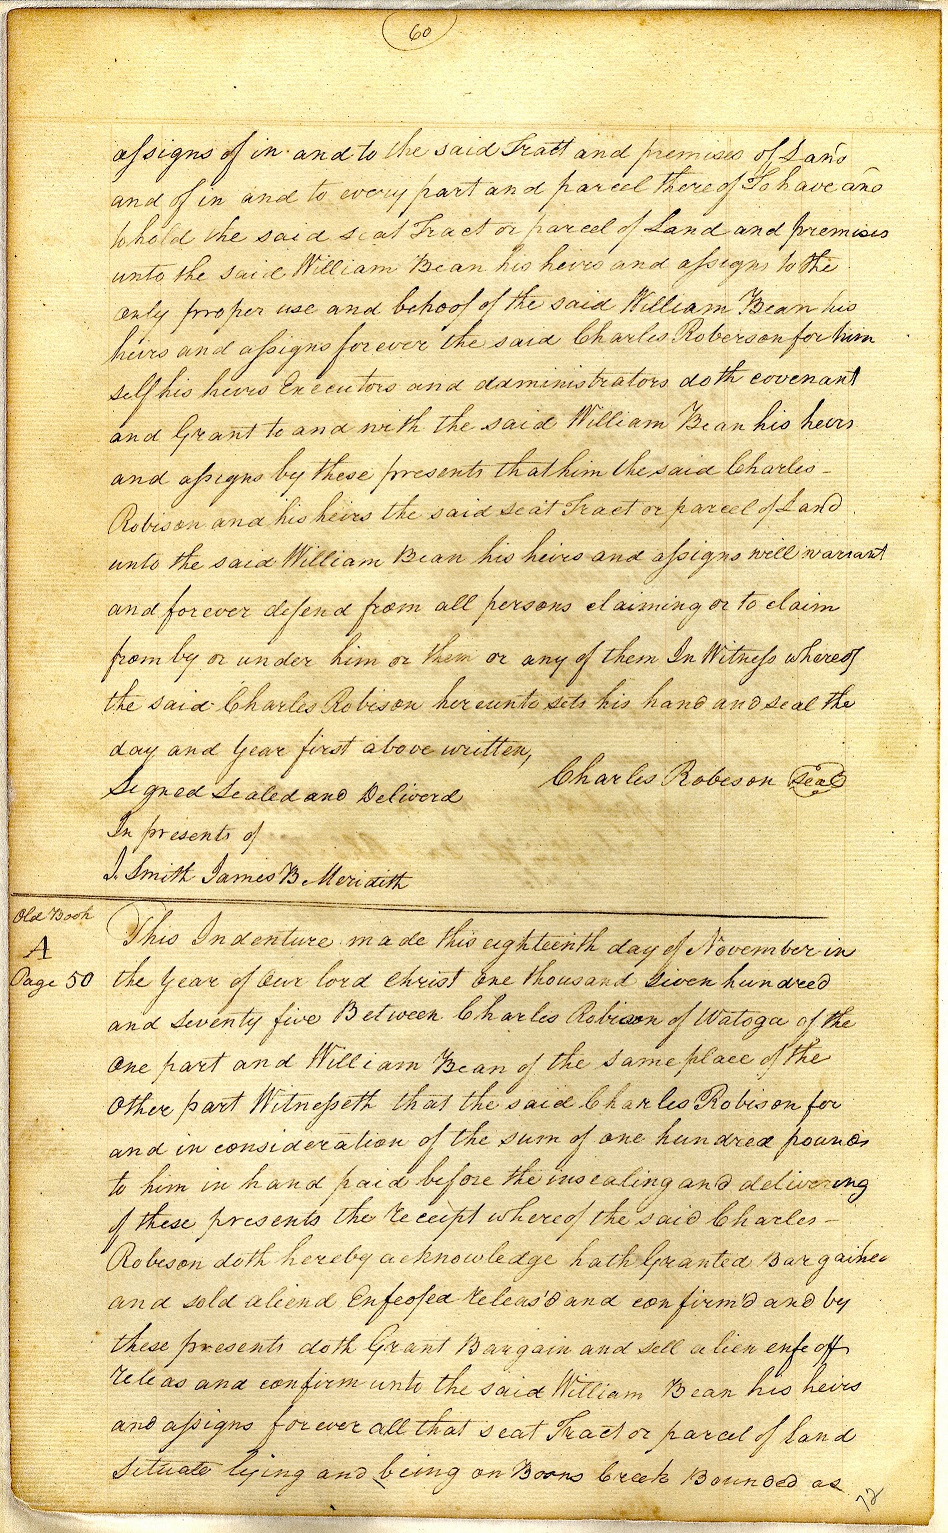 60
assigns of in and to the said Tract and premises of Land
and of in and to every part and parcel thereof To have and
to hold the said seat Tract or parcel of Land and premises
unto the said William Bean his heirs and assigns to the
only proper use and behoof of the said William Bean his
heirs and assigns forever the said Charles Roberson for him
self his heirs Executors and administrators doth covenant
and Grant to and with the said William Bean his heirs
and assigns by these presents that him the said Charles -
Robison and his heirs the said seat Tract or parcel of Land
unto the said William Bean his heirs and assigns will warrant
and forever defend from all persons claiming or to claim
from by or under him or them or any of them In Witness whereof
the said Charles Robison hereunto sets his hand and seal the
day and year first above written,
Charles Robeson Seal
Signed Sealed and Deliverd
In presents of
J. Smith James B Meridith
Old Book
A
Page 50
This Indenture made this eighteenth day of November in
the year of our lord Christ one thousand Seven hundred
and Seventy five Between Charles Robison of Watoga of the
one part and William Bean of the same place of the
Other part Witnesseth that the said Charles Robison for
and in consideration of the sum of one hundred pounds
to him in hand paid before the insealing and delivering
of these presents the receipt whereof the said Charles -
Robeson doth hereby acknowledge hath Granted Bargained
and sold aliend Enfeofed releas'd and confirm'd and by
these presents doth Grant Bargain and sell alien enfeoff
releas and confirm unto the said William Bean his heirs
and assigns forever all that seat Tract or parcel of land
Situate lying and being on Boons Creek Bounded as
72